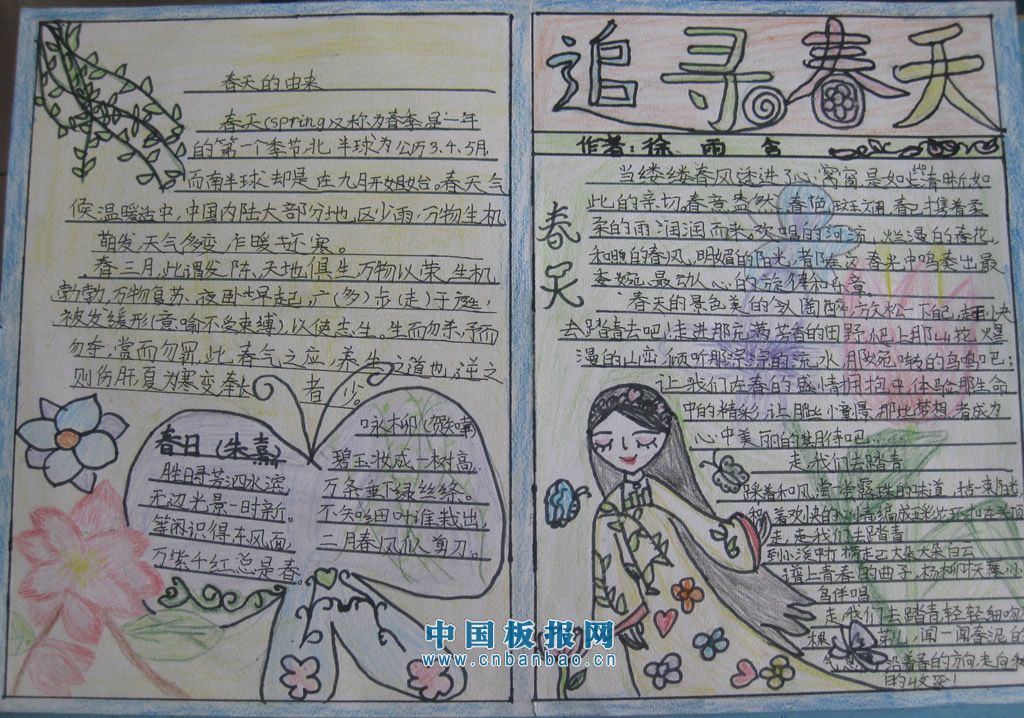 春天的由来
春天(spring)又称为春季是一年
的第一个季节,北半球为公历3.4.5月,
而南半球却是在九月开始。春天气
候温暖适中,中国内陆大部分地区少雨,万物生机
萌发,天气多变,乍暖还寒。
春三月,此谓发陈、天地俱生,万物以荣,生机
勃勃,万物复苏、夜卧早起,广(多)步(走)于庭,
被发缓形(意喻不受束缚),以使志生。生而勿杀,予而
勿夺,赏而勿罚,此春气之应,养生之道也,逆之
则伤肝,夏为寒变,奉长者少。
春日(朱熹)
胜日寻芳泗水滨,
无边光景一时新。
等闲识得东风面,
万紫千红总是春。
咏柳(
碧玉妆成一树高,
万条垂下绿丝绦。
不知细叶谁裁出,
二月春风似剪刀。
追寻春天
作者:徐雨
春天
当缕缕春风透进了心窗,窗是如此清晰,如
此的亲切,春意盎然,春色斑斓,春已携着柔
柔的雨润润而来,欢唱的河流,烂漫的春花,
和暖的春风,明媚的阳光,都在这春光中鸣奏出最
委婉,最动人心的旋律和乐章
春天的景色美的令人陶醉,放松一下自己,赶快
去踏青去吧!走进那充满芳香的田野,爬上那山花烂
漫的山峦,倾听那淙淙的流水,那婉转的鸟鸣吧;
让我们在春的盛情拥抱中,体验那生命
中的精彩,让那些憧憬,那些梦想,都成为
心中美丽的 吧……
走,我们去踏青
踩着和风,尝一尝露珠的味道,
和着欢快的 编成彩 环
走,走,我们去踏青
到小溪中打捞起一大朵大朵白云
谱上青春的曲子,杨柳
鸟伴唱
走,我们去踏青,轻轻细吻
棵 草儿,闻一闻春泥的
气息,沿着春的方向,走向
的收 !
中国板报网
www.cnbanbao.cn